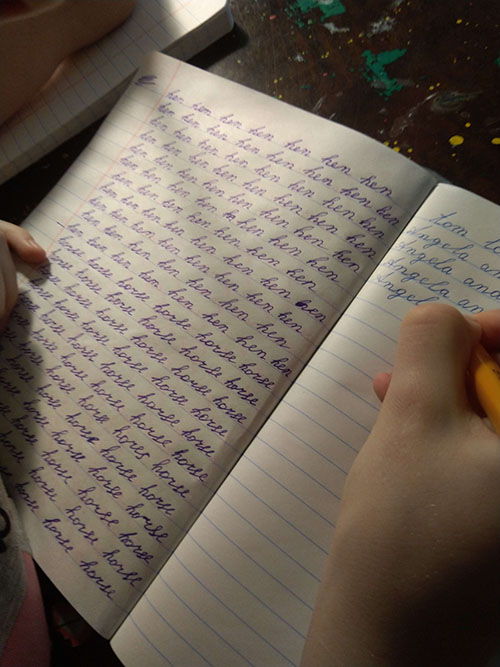 hen hen hen hen hen hen hen
hen hen hen hen hen hen hen hen
hen hen hen hen hen hen hen hen
hen hen hen hen hen hen hen hen
hen hen hen hen hen hen hen
hen hen hen hen hen hen hen
hen hen hen hen hen hen hen
hen hen hen hen hen hen hen
hen hen hen hen hen hen hen
horse horse horse horse horse
horse horse horse horse horse
horse horse horse horse horse
horse horse horse horse horse
horse horse hous horse
horse horse horse horse
horse horse horse
horse horse horse
horse horse
horse horse
Tom
Angela and
Angela and
Angela an